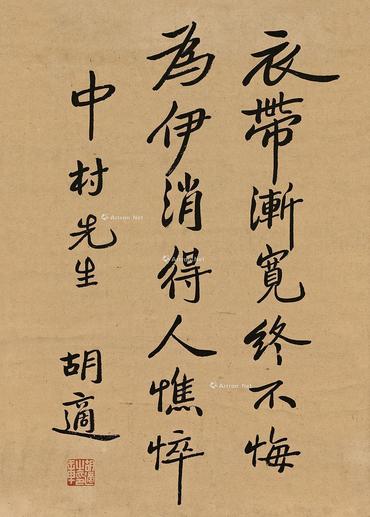 衣帶漸寬終不悔
為伊消得人憔悴
中村先生
胡適
Artron.Net
Artron.Net
Artron.Net
Artron.Net